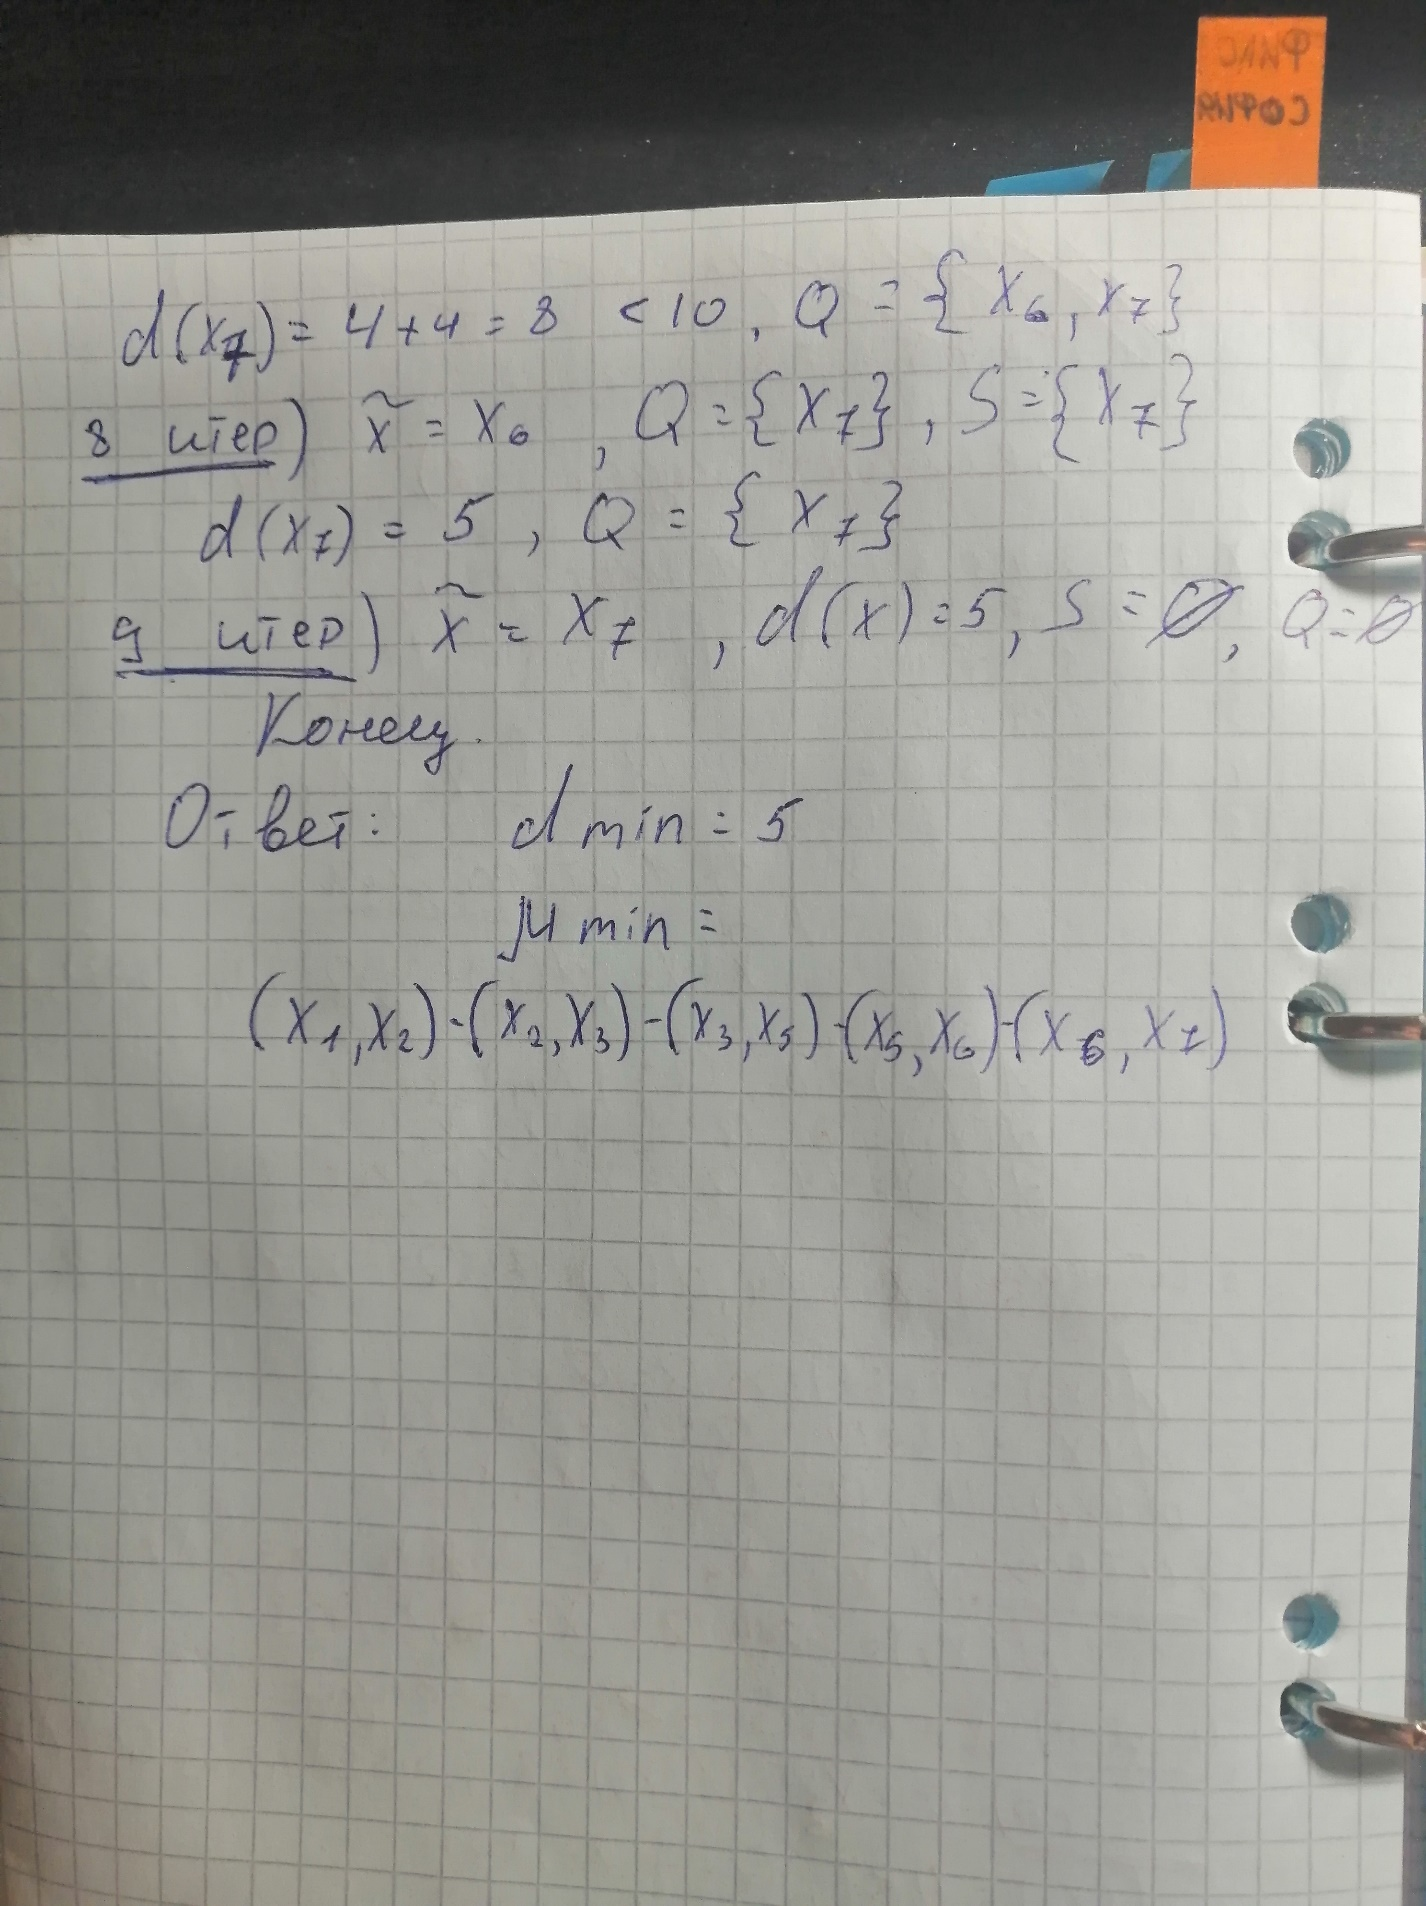 ФИЛС
СОФИЯ
d(x₇) = 4+4 = 8 < 10, Q = {x₆, x₇}
8 итер) x̃ = x₆, Q = {x₇}, S = {x₇}
d(x₇) = 5, Q = {x₇}
9 итер) x̃ = x₇, d(x) = 5, S = ∅, Q = ∅
Конец.
Ответ: d min = 5
μ min =
(x₁, x₂) - (x₂, x₃) - (x₃, x₅) - (x₅, x₆) - (x₆, x₇)